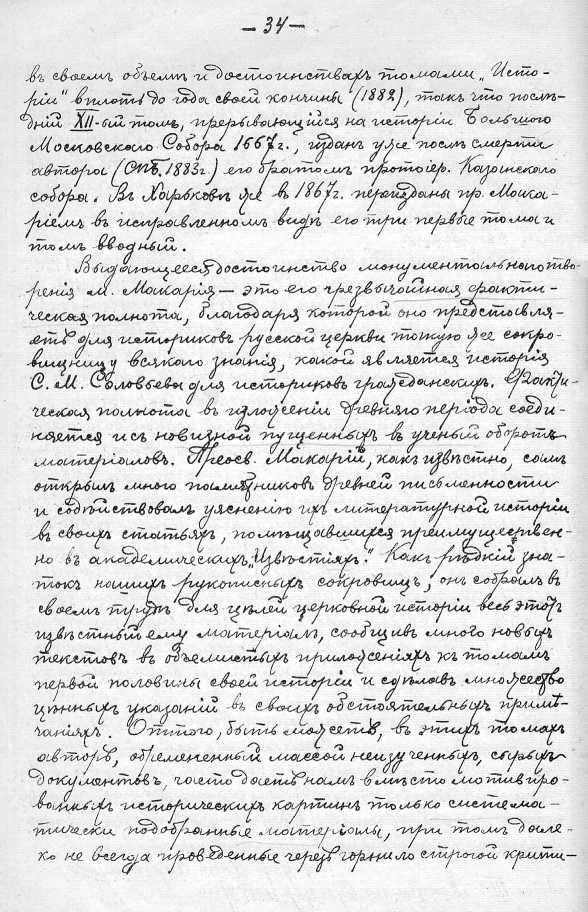 — 34 —
въ своемъ объемѣ и достоинствахъ томами „Исто-
рiи" вплоть до года своей кончины (1882), такъ что послѣ-
днiй XII-ый томъ, прерывающiйся на исторiи Большого
Московскаго Собора 1667г., изданъ уже послѣ смерти
автора (СПБ. 1883г.) его братомъ протоiер. Казанскаго
собора. Въ Харьковѣ же въ 1867г. переизданы пр. Мака-
рiемъ въ исправленномъ видѣ его три первые тома и
томъ вводный.
Выдающееся достоинство монументальнаго тво-
ренiя м. Макарiя — это его чрезвычайная факти-
ческая полнота, благодаря которой оно представля-
етъ для историковъ русской церкви такую же сокро-
вищницу всякаго знанiя, какой является исторiя
С. М. Соловьева для историковъ гражданскихъ. Факти-
ческая полнота въ изложенiи древняго перiода соеди-
няется и съ новизной пущенныхъ въ ученый оборотъ
матерiаловъ. Преосв. Макарiй, какъ извѣстно, самъ
открылъ много памятниковъ древней письменности
и содѣйствовалъ уясненiю ихъ литературной исторiи
въ своихъ статьяхъ, помѣщавшихся преимуществен-
но въ академическихъ „Извѣстiяхъ". Какъ рѣдкiй зна-
токъ нашихъ рукописныхъ сокровищъ, онъ собралъ въ
своемъ трудѣ для цѣлей церковной исторiи весь этотъ
извѣстный ему матерiалъ, сообщивъ много новыхъ
текстовъ въ объемистыхъ приложенiяхъ къ томамъ
первой половины своей исторiи и сдѣлавъ множество
цѣнныхъ указанiй въ своихъ обстоятельныхъ примѣ-
чанiяхъ. Оттого, быть можетъ, въ этихъ томахъ
авторъ, обремененный массой неизученныхъ, сырыхъ
документовъ, часто даетъ намъ вмѣсто мотивиро-
ванныхъ историческихъ картинъ только система-
тически подобранные матерiалы, при томъ дале-
ко не всегда проведенные черезъ горнило строгой крити-